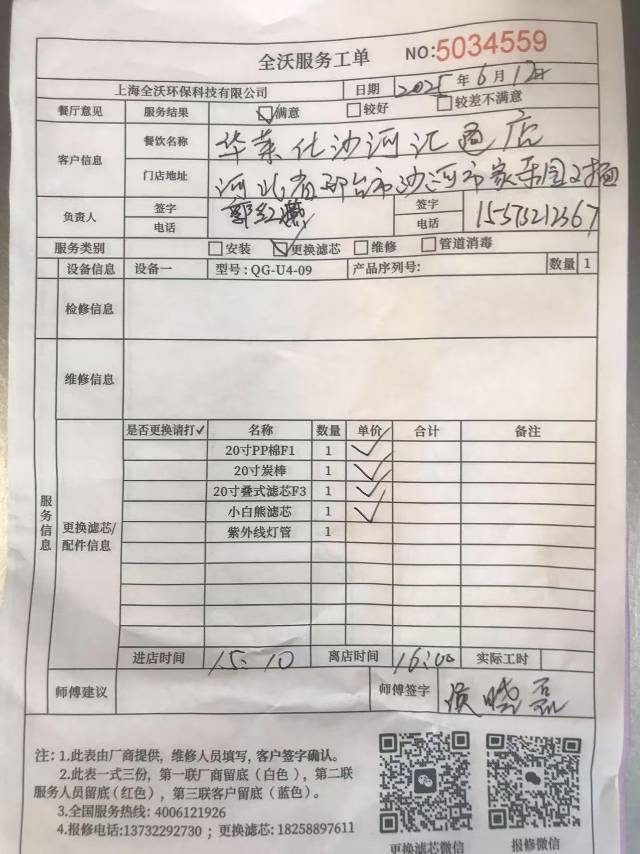 全沃服务工单 NO:5034559
上海全沃环保科技有限公司 日期 2025年6月12日
餐厅意见 服务结果 ☑满意 □较好 □较差不满意
客户信息 餐饮名称 华莱仕沙河汇通店
门店地址 河北省邢台市沙河市家乐园对面
负责人 签字 郭红燕 签字
电话 电话 15573212367
服务类别 □安装 ☑更换滤芯 □维修 □管道消毒
设备信息 设备一 型号:QG-U4-09 产品序列号: 数量 1
检修信息
维修信息
服务信息
更换滤芯/配件信息
是否更换请打✓ 名称 数量 单价 合计 备注
20寸PP棉F1 1 ✓
20寸炭棒 1 ✓
20寸叠式滤芯F3 1 ✓
小白熊滤芯 1 ✓
紫外线灯管 1
进店时间 15:10 离店时间 16:00 实际工时
师傅建议 师傅签字 侯晓磊
注:1.此表由厂商提供,维修人员填写,客户签字确认。
2.此表一式三份,第一联厂商留底(白色),第二联
服务人员留底(红色),第三联客户留底(蓝色)。
3.全国服务热线:4006121926
4.报修电话:13732292730;更换滤芯:18258897611
更换滤芯微信 报修微信